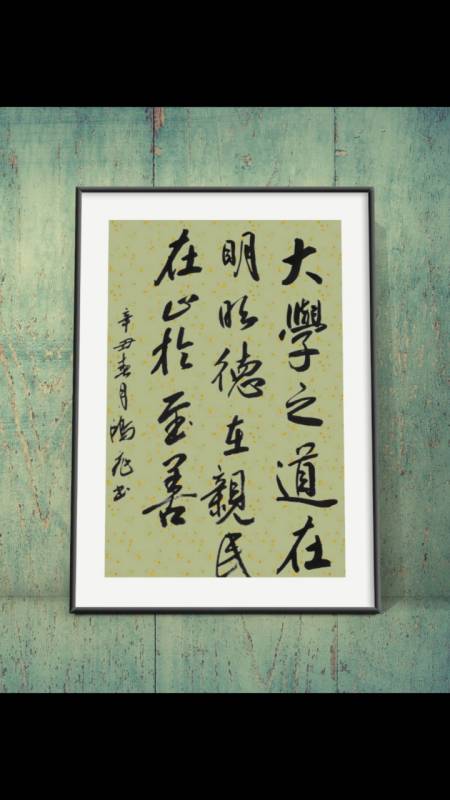 大學之道在
明明德在親民
在止於至善
辛丑春月
書